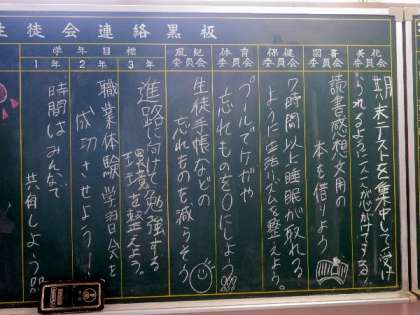 生徒会連絡黒板
美化委員会
期末テストを集中して受け
られるように心がけする
図書委員会
読書感想文用の
本を借りよう
保健委員会
7時間以上睡眠が取れる
ように生活リズムを整えよう。
体育委員会
プールでケガや
忘れものを0にしよう
風紀委員会
生徒手帳などの
忘れものを減らそう
学年目標
3年
進路に向けて勉強する
環境を整えよう。
2年
職業体験学習会を
成功させよう!
1年
時間はみんなで
共有しよう